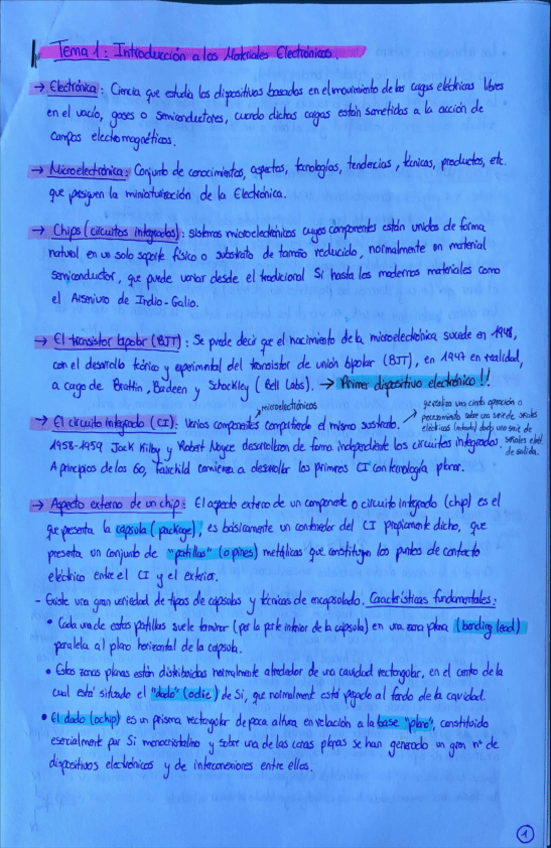 Tema 1: Introducción a los Materiales Electrónicos.
→ Electrónica: Ciencia que estudia los dispositivos basados en el movimiento de las cargas eléctricas libres
en el vacío, gases o semiconductores, cuando dichas cargas están sometidas a la acción de
campos electromagnéticos.
→ Microelectrónica: Conjunto de conocimientos, aspectos, tecnologías, tendencias, técnicas, productos, etc.
que persiguen la miniaturización de la Electrónica.
→ Chips (circuitos integrados): sistemas microelectrónicos cuyos componentes están unidos de forma
natural en un solo soporte físico o substrato de tamaño reducido, normalmente un material
semiconductor, que puede variar desde el tradicional Si hasta los modernos materiales como
el Arseniuro de Indio-Galio.
→ El transistor bipolar (BJT): Se puede decir que el nacimiento de la microelectrónica sucede en 1948,
con el desarrollo teórico y experimental del transistor de unión bipolar (BJT), en 1947 en realidad,
a cargo de Brattin, Bardeen y Schockley (Bell Labs). → Primer dispositivo electrónico!!
microelectrónicos
que realiza una cierta operación o
procesamiento sobre una serie de señales
eléctricas (entrada) dando una serie de
señales eléct.
de salida.
→ El circuito integrado (CI): Varios componentes compartiendo el mismo sustrato.
1958-1959 Jack Kilby y Robert Noyce desarrollan de forma independiente los circuitos integrados.
A principios de los 60, Fairchild comienza a desarrollar los primeros CI con tecnología planar.
→ Aspecto externo de un chip: El aspecto externo de un componente o circuito integrado (chip) es el
que presenta la capsula (package), es básicamente un contenedor del CI propiamente dicho, que
presenta un conjunto de "patillas" (o pines) metálicas que constituyen los puntos de contacto
eléctrico entre el CI y el exterior.
- Existe una gran variedad de tipos de capsulas y técnicas de encapsulado. Características fundamentales:
• Cada una de estas patillas suele terminar (por la parte interior de la capsula) en una zona plana (bonding lead)
paralela al plano horizontal de la capsula.
• Estas zonas planas están distribuidas normalmente alrededor de una cavidad rectangular, en el centro de la
cual está situado el "dado" (o die) de Si, que normalmente está pegado al fondo de la cavidad.
• El dado (o chip) es un prisma rectangular de poca altura en relación a la base "plano", constituido
esencialmente por Si monocristalino y sobre una de las caras planas se han generado un gran nº de
dispositivos electrónicos y de interconexiones entre ellos.
1